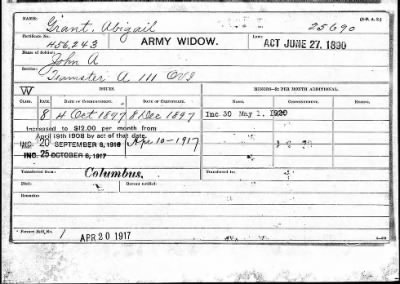 NAME: Grant, Abigail 25690
Certificate No. 456,243 ARMY WIDOW. ACT JUNE 27, 1890
John A
Service: Teamster A 111 OVI
W DOLLARS. MINORS—$2 PER MONTH ADDITIONAL.
CLASS. RATE. DATE OF COMMENCEMENT. DATE OF CERTIFICATE. NAME. COMMENCEMENT.
8 4 Oct 1897 8 Dec 1897 Inc 30 May 1. 1920
Increased to $12.00 per month from
April 19th 1908 by act of that date.
INC. 20 SEPTEMBER 8, 1916 Apr 10-1917
INC. 25 OCTOBER 6, 1917
Transferred from: Columbus. Transferred to:
Died: Bureau notified:
Remarks:
Former Roll No. 1 APR 20 1917